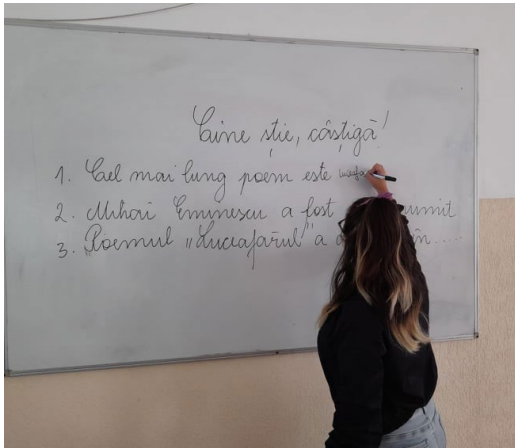 Cine știe, câștigă!
1. Cel mai lung poem este
2. Mihai Eminescu a fost
3. Poemul „Luceafărul" a în.....